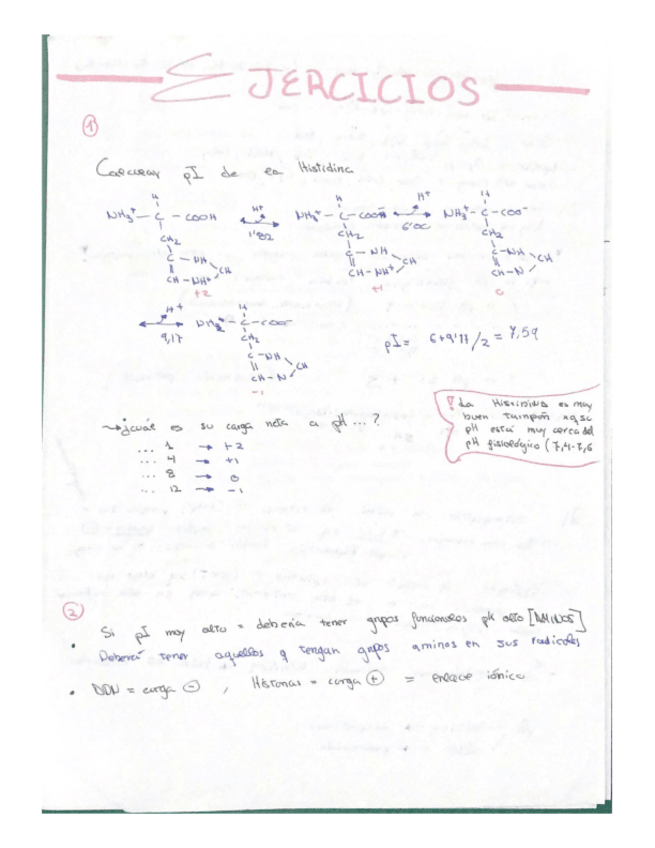 EJERCICIOS
①
Calcular pI de la Histidina
H H⁺ H H⁺ H
NH₃⁺ — C — COOH 1'82 NH₃⁺ — C — COO⁻ 6'00 NH₃⁺ — C — COO⁻
CH₂ CH₂ CH₂
C — NH C — NH C — NH
CH CH CH
CH — NH⁺ CH — NH⁺ CH — N
+2 +1 0
H⁺ H
9,17 NH₂ — C — COO⁻ pI = 6+9'17/2 = 7,59
CH₂
C — NH
CH
CH — N
-1
¿cuál es su carga neta a pH ...?
... 1 → +2
... 4 → +1
... 8 → 0
... 12 → -1
! La Histidina es muy
buen tampón xq su
pH está muy cerca del
pH fisiológico (7,4-7,6
②
Si pI muy alto = debería tener grupos funcionales pK alto [AMINOS]
• Deberá tener aquellos q tengan grupos aminos en sus radicales
• DDN = carga ⊖ , Histonas = carga ⊕ = enlace iónico